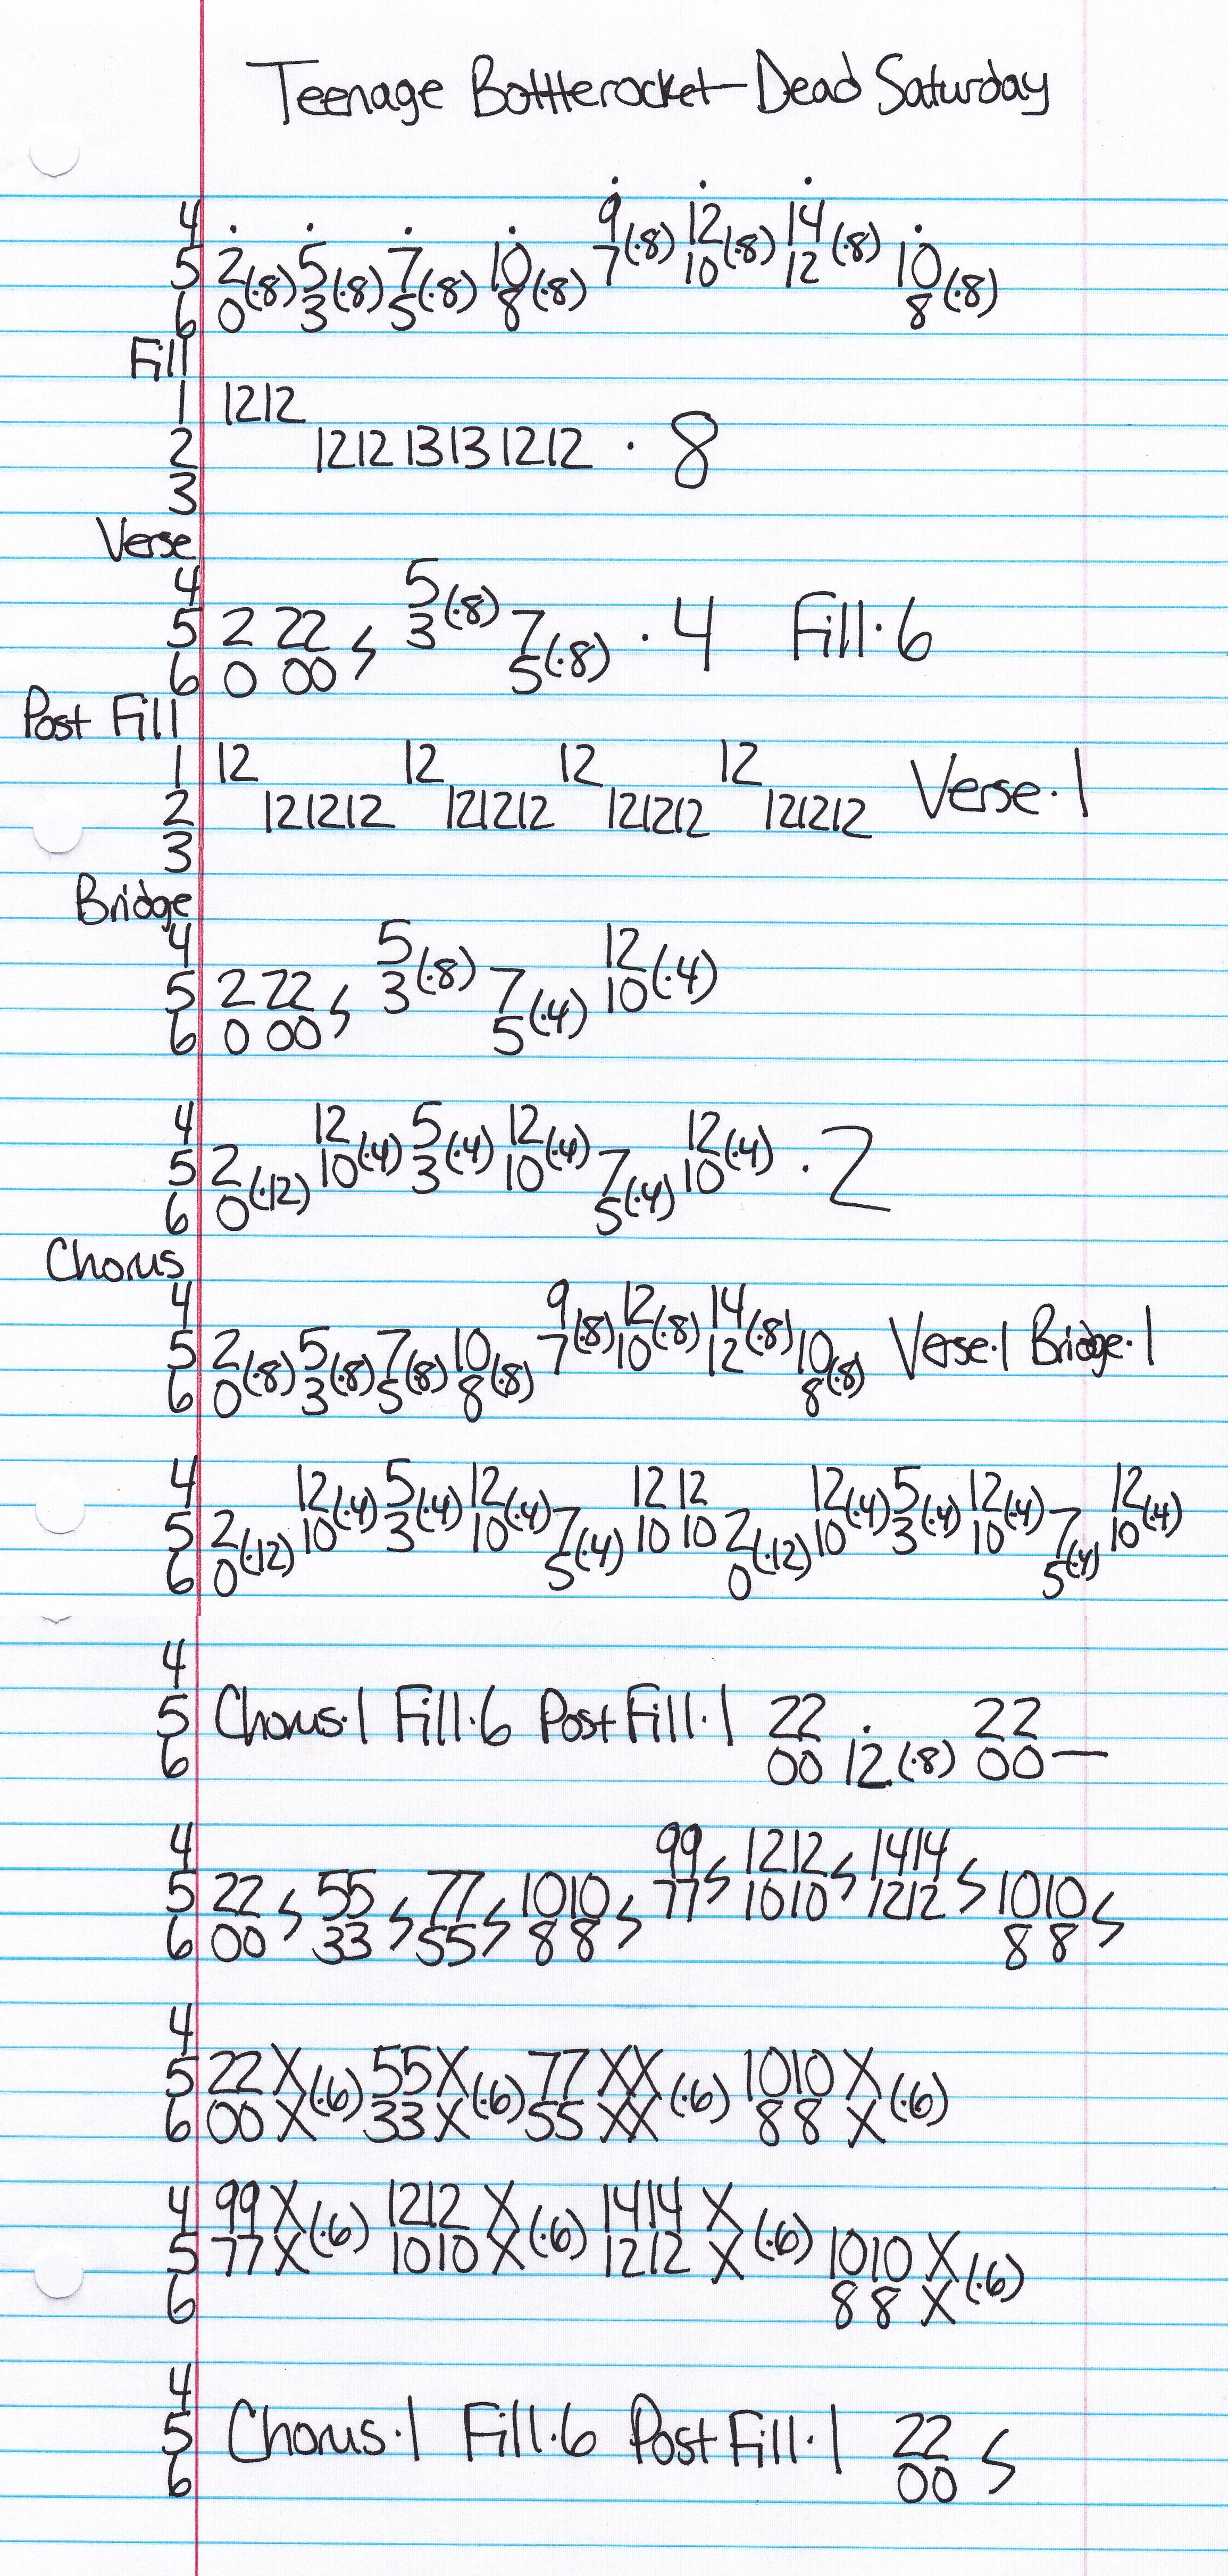 Teenage Bottlerocket-Dead Saturday
4 9 12 14
5 2(·8) 5(·8) 7(·8) 10(·8) 7(·8) 10(·8) 12(·8) 10(·8)
6 0 3 5 8 8
Fill
1 1212
2 1212 1313 1212 · 8
3
Verse
4 5(·8)
5 2 22 3 7(·8) · 4 Fill·6
6 0 00 5
Post Fill
1 12 12 12 12 Verse·1
2 121212 121212 121212 121212
3
Bridge
4 5(·8) 12(·4)
5 2 22 3 7(·4) 10
6 0 00 5
4 12(·4) 5(·4) 12(·4) 12(·4)
5 2(·12) 10 3 10 7(·4) 10 · 2
6 0 5
Chorus
4 9(·8) 12(·8) 14(·8)
5 2(·8) 5(·8) 7(·8) 10(·8) 7 10 12 10(·8) Verse·1 Bridge·1
6 0 3 5 8 8
4 12(·4) 5(·4) 12(·4) 12 12 12(·4) 5(·4) 12(·4) 12(·4)
5 2(·12) 10 3 10 7(·4) 10 10 2(·12) 10 3 10 7(·4) 10
6 0 5 0 5
4
5 Chorus·1 Fill·6 Post Fill·1 22 22
6 00 12(·8) 00—
4 99 1212 1414
5 22 55 77 1010 77 1010 1212 1010
6 00 33 55 88 88
4
5 22X(·6) 55X(·6) 77XX(·6) 1010X(·6)
6 00X 33X 55XX 88X
4 99X(·6) 1212X(·6) 1414X(·6)
5 77X 1010X 1212X 1010X(·6)
6 88X
4
5 Chorus·1 Fill·6 Post Fill·1 22
6 00